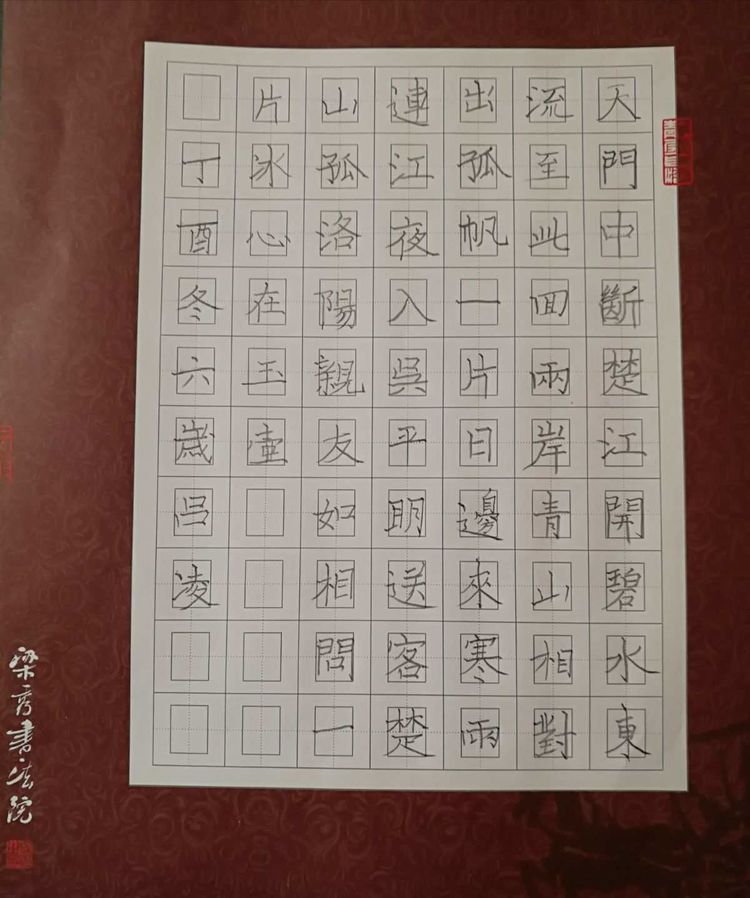 天門中斷楚江開碧水東
流至此回兩岸青山相對
出孤帆一片日邊來寒雨
連江夜入吳平明送客楚
山孤洛陽親友如相問一
片冰心在玉壺
丁酉冬六歲呂凌
梁秀書法院